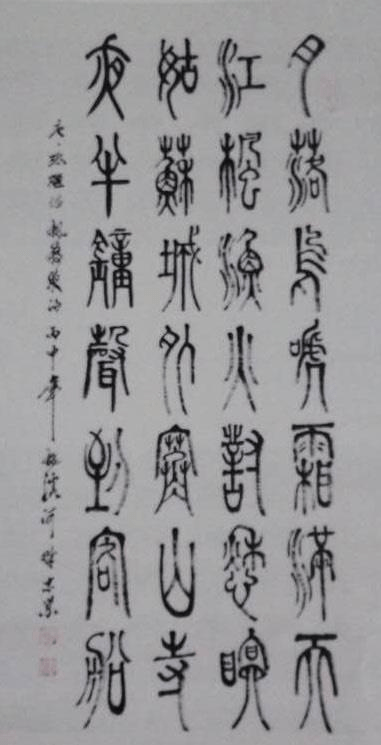 月落烏嗁霜滿天
江楓漁火對愁瞑
姑蘇城外寒山寺
夜半鐘聲到客船
唐·張繼詩楓橋夜泊丙申年